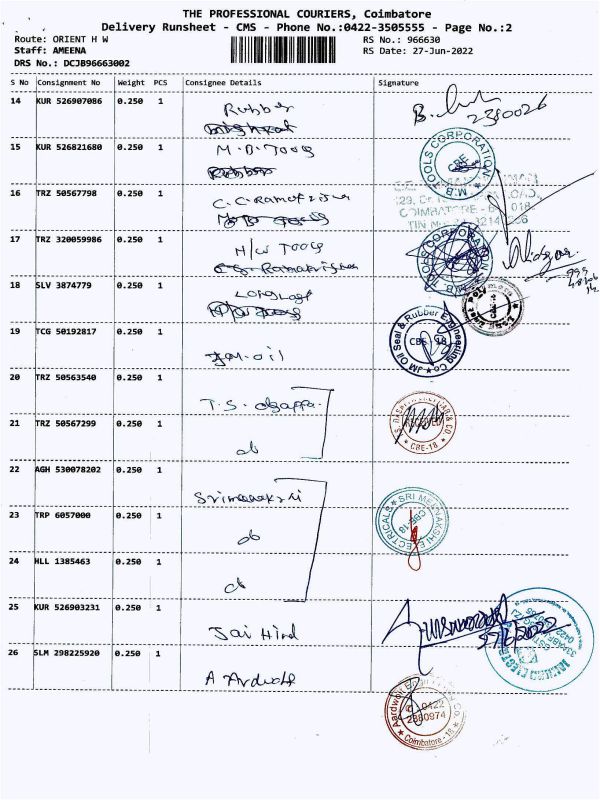 THE PROFESSIONAL COURIERS, Coimbatore
Delivery Runsheet - CMS - Phone No.:0422-3505555 - Page No.:2
Route: ORIENT H W
RS No.: 966630
Staff: AMEENA
RS Date: 27-Jun-2022
DRS No.: DCJB96663002
S No Consignment No Weight PCS Consignee Details Signature
14 KUR 526907086 0.250 1 Rubber
2380026
15 KUR 526821680 0.250 1 M.B. Tools
Rubber
M.B. TOOLS CORPORATION CBE
COIMBATORE
16 TRZ 50567798 0.250 1 C.C. Ramakrishna
17 TRZ 320059986 0.250 1 H/W Tools
M.B. TOOLS CORPORATION
18 SLV 3874779 0.250 1
19 TCG 50192817 0.250 1 oil
JM Oil Seal & Rubber Engineering Co CBE - 18
20 TRZ 50563540 0.250 1 T.S.
21 TRZ 50567299 0.250 1 do
RECEIVED
CBE-18
22 AGH 530078202 0.250 1 Srimeenakshi
SRI MEENAKSHI ELECTRICALS CBE-18
23 TRP 6057000 0.250 1 do
24 HLL 1385463 0.250 1 do
25 KUR 526903231 0.250 1 Jai Hind
27/6/2022
26 SLM 298225920 0.250 1 A Ardwolf
Aardwolf
0422
2380974
Coimbatore - 18